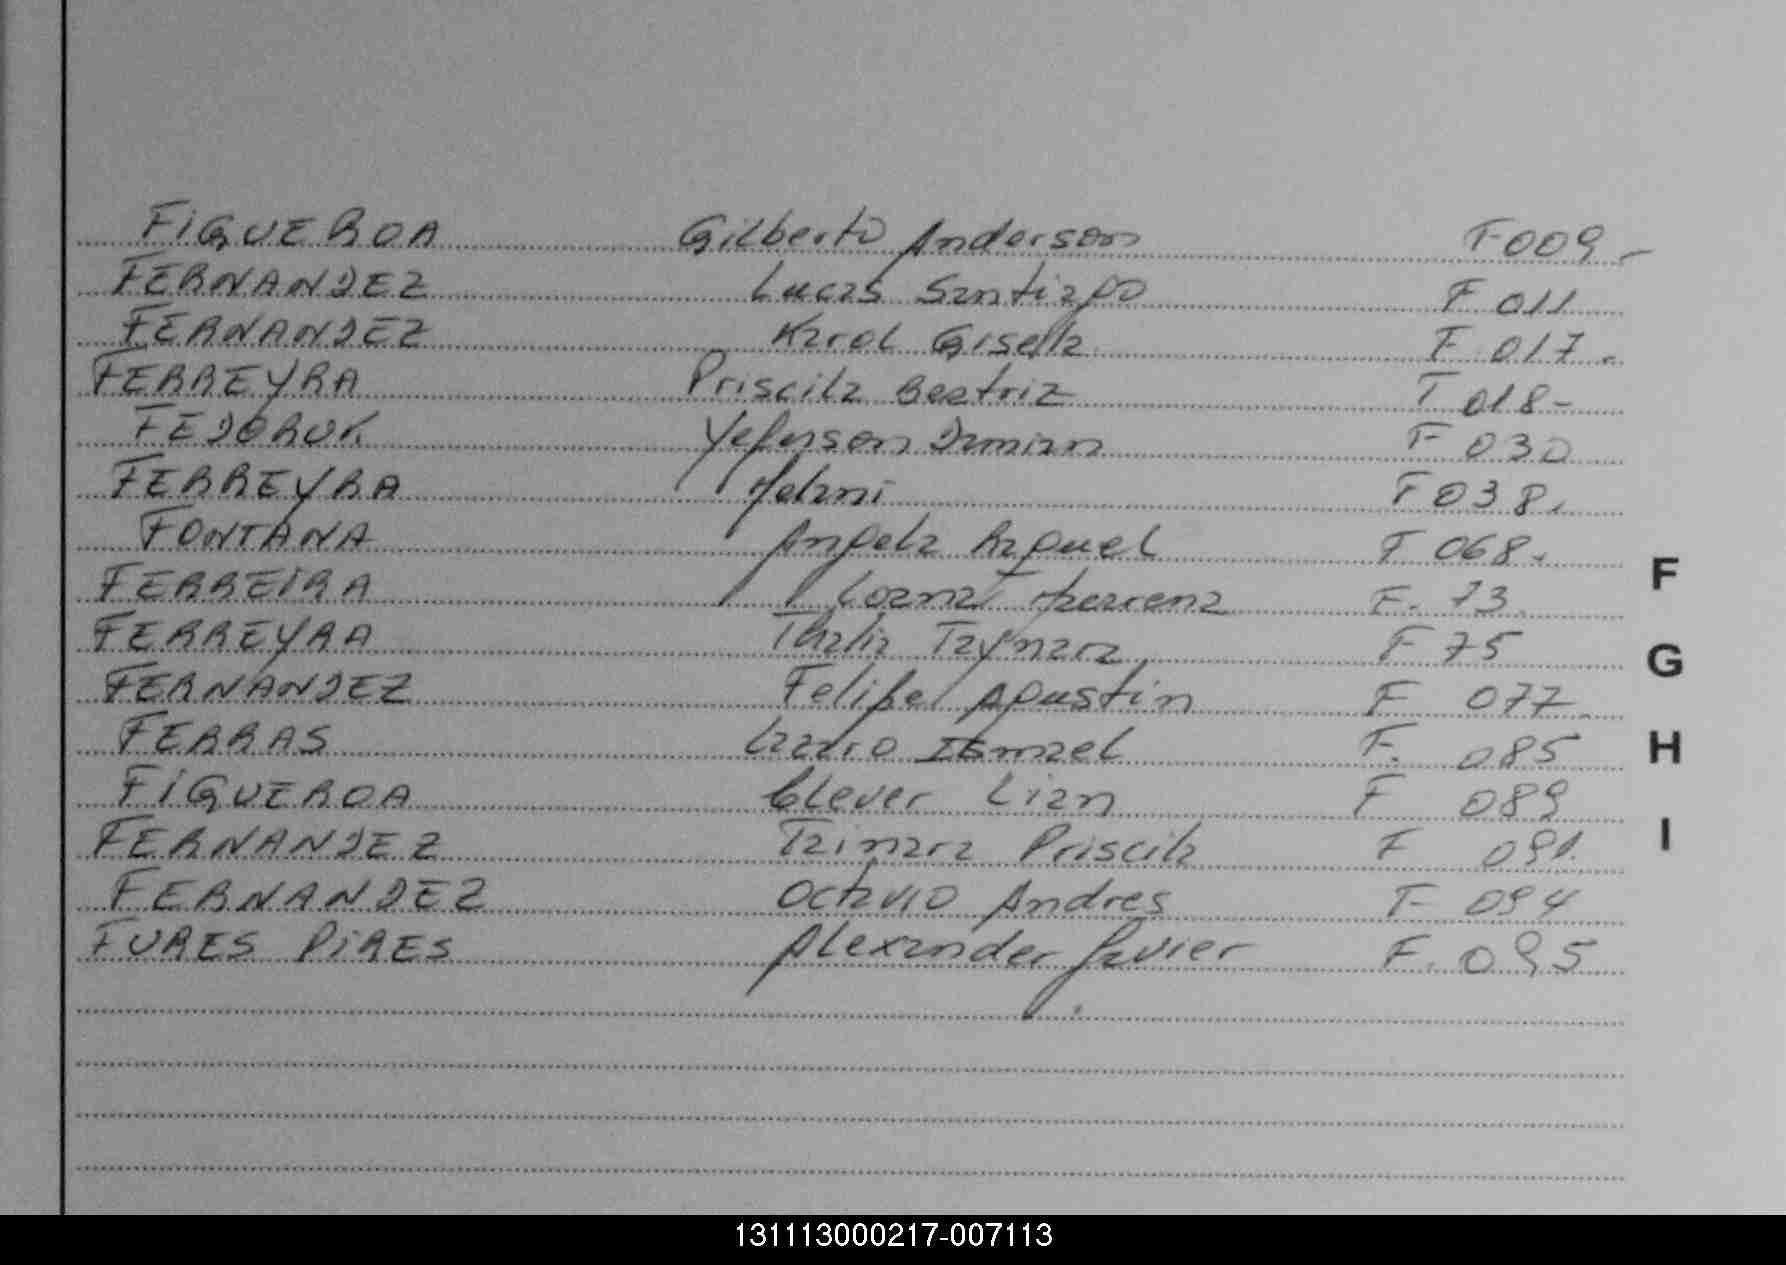 FIGUEROA Gilberto Anderson F 009.-
FERNANDEZ Lucas Santiago F 011
FERNANDEZ Karol Gisela F 017.
FERREYRA Priscila Beatriz F 018-
FEDORUK Yeferson Damian F 030
FERREYRA F 038.
FONTANA Angela Raquel F 068.
FERREIRA F. 73
FERREYRA Thalia Taynara F 75
FERNANDEZ Felipe Agustin F 077
FERRAS Lazaro Ismael F. 085
FIGUEROA Clever Lian F 089
FERNANDEZ Tainara Priscila F 091.
FERNANDEZ Octavio Andres F 094
FURES PIRES Alexander Javier F. 095
F
G
H
I
131113000217-007113